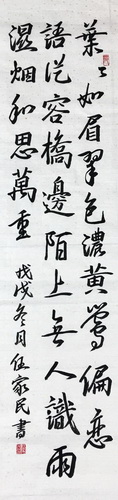 葉々如眉翠色濃黄鶯偏恋
語従容橋邊陌上無人識雨
湿烟和思萬重
戊戌冬月伍家民書